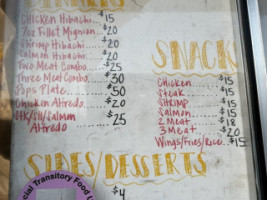 DINNERS
Chicken Hibachi $15
7oz Fillet Mignon $20
Shrimp Hibachi $20
Salmon Hibachi $20
Two Meat Combo $25
Three Meat Combo $30
Pops Plate $50
Chicken Alfredo $20
CHK/SH/Salmon $25
Alfredo
SNACK
Chicken $15
Steak $15
Shrimp $15
Salmon $15
2 Meat $18
3 Meat $20
Wings/Fries/Rice $15
SIDES/DESSERTS
$4
cial Transitory Food U